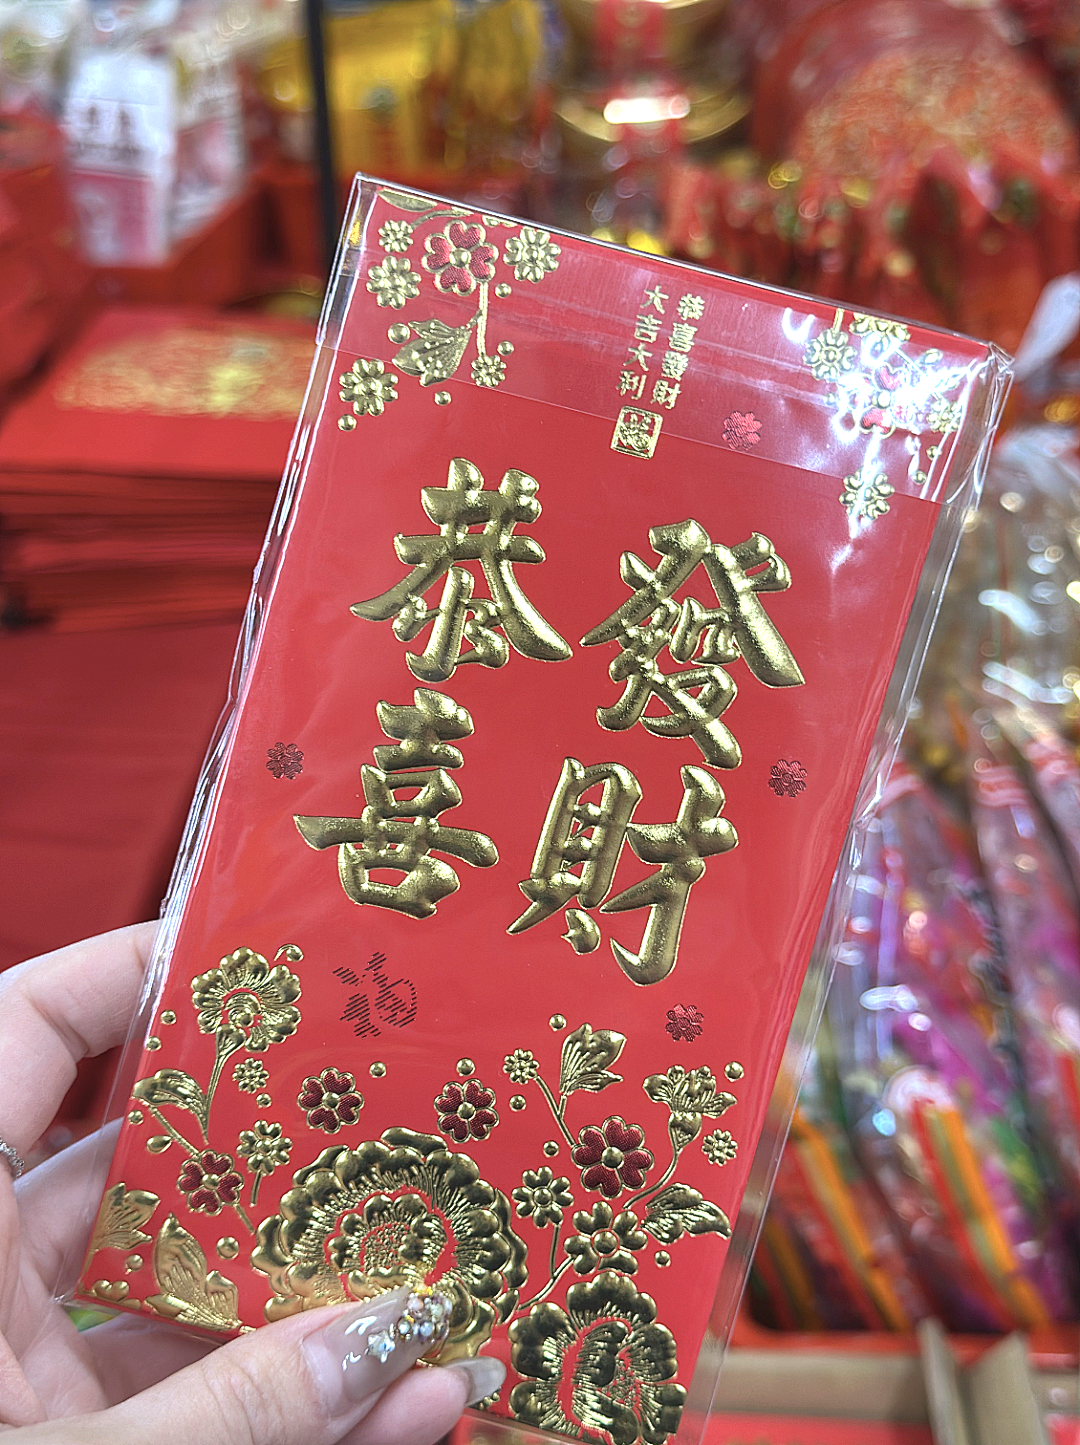 恭喜發財
大吉大利
恭喜
發財
福